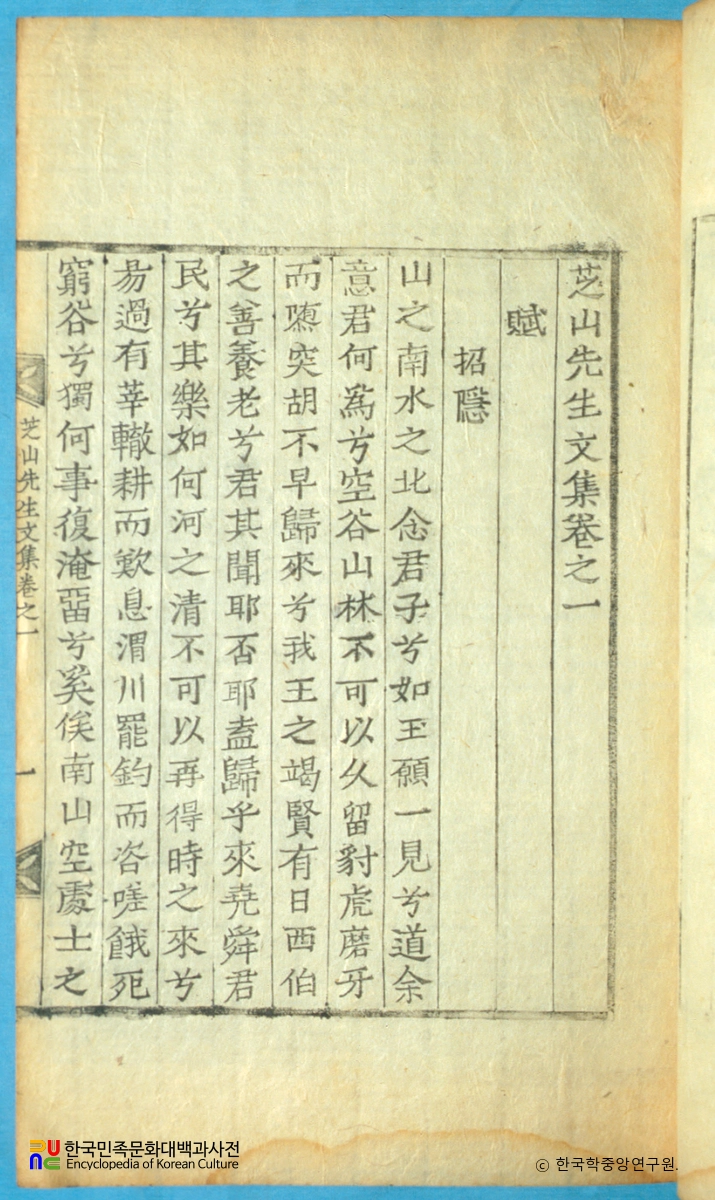 芝山先生文集卷之一
賦
招隱
山之南水之北念君子兮如玉願一見兮道余
意君何爲兮空谷山林不可以久留豺虎磨牙
而隳突胡不早歸來兮我王之竭賢有日西伯
之善養老兮君其聞耶否耶盍歸乎來堯舜君
民兮其樂如何河之清不可以再得時之來兮
昜過有莘轍耕而歎息渭川罷釣而咨嗟餓死
窮谷兮獨何事復淹留兮奚俟南山空處士之
芝山先生文集卷之一
一
한국민족문화대백과사전
Encyclopedia of Korean Culture
© 한국학중앙연구원.